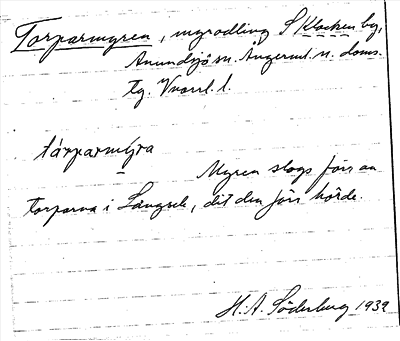 Torparmyren, myrodling S Klocken by,
Anundsjö sn. Ångerml. n. doms.
tg. Vnorrl. l.
tárparmýra
Myren slogs förr av
torparna i Långsele, dit den förr hörde.
H. A. Söderberg 1939